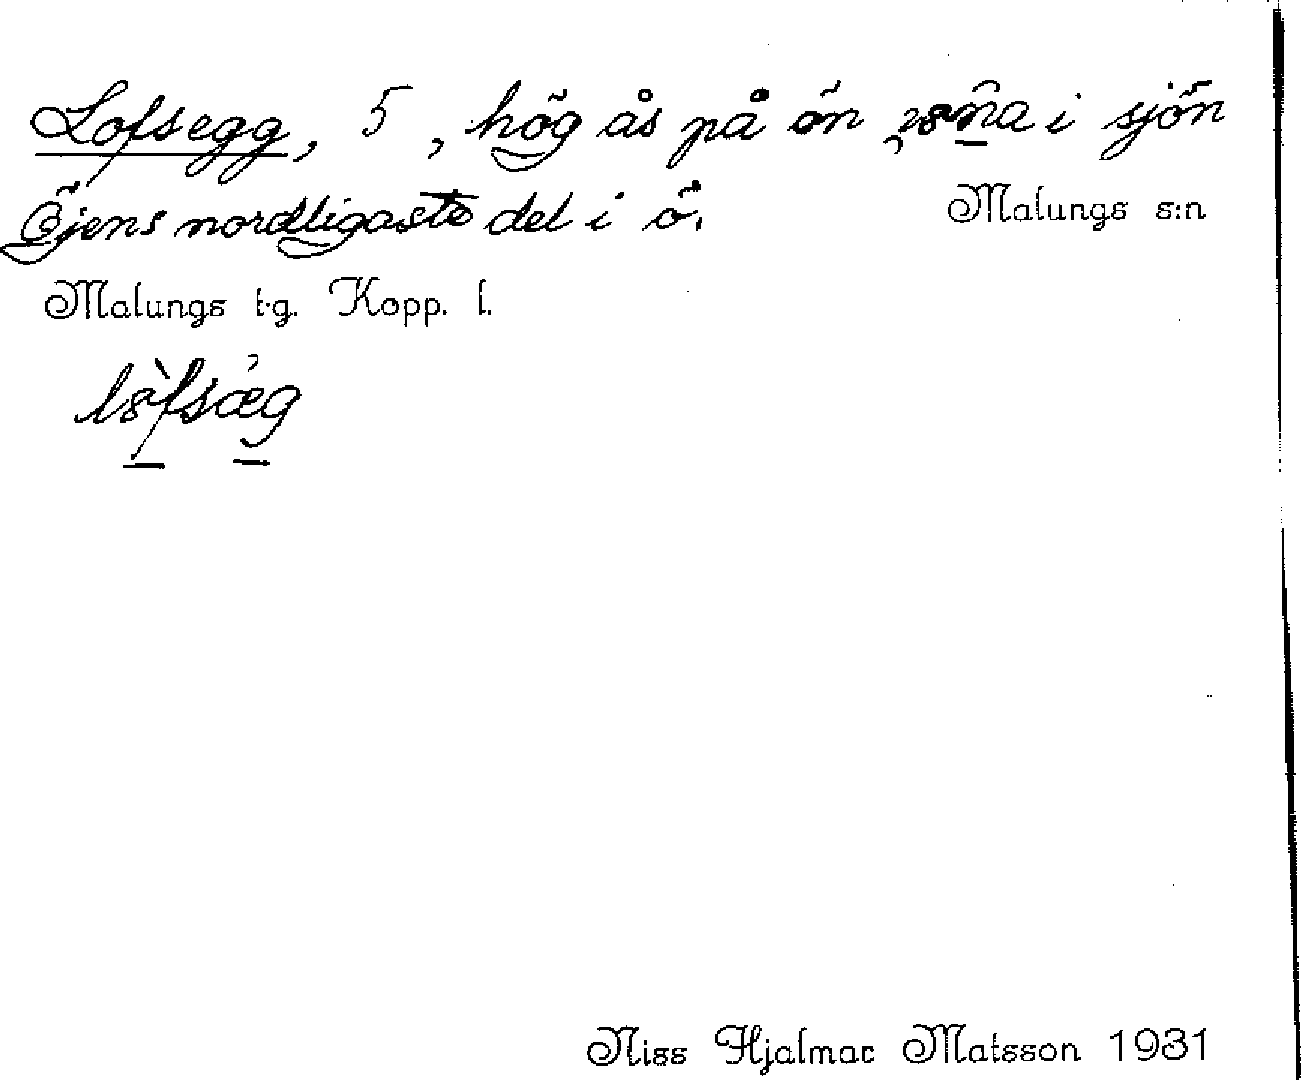 Lofsegg, 5, hög ås på ön i sjön
Öjens nordligaste del i ö.
Malungs s:n
Malungs t.g. Kopp. l.
Niss Hjalmar Matsson 1931